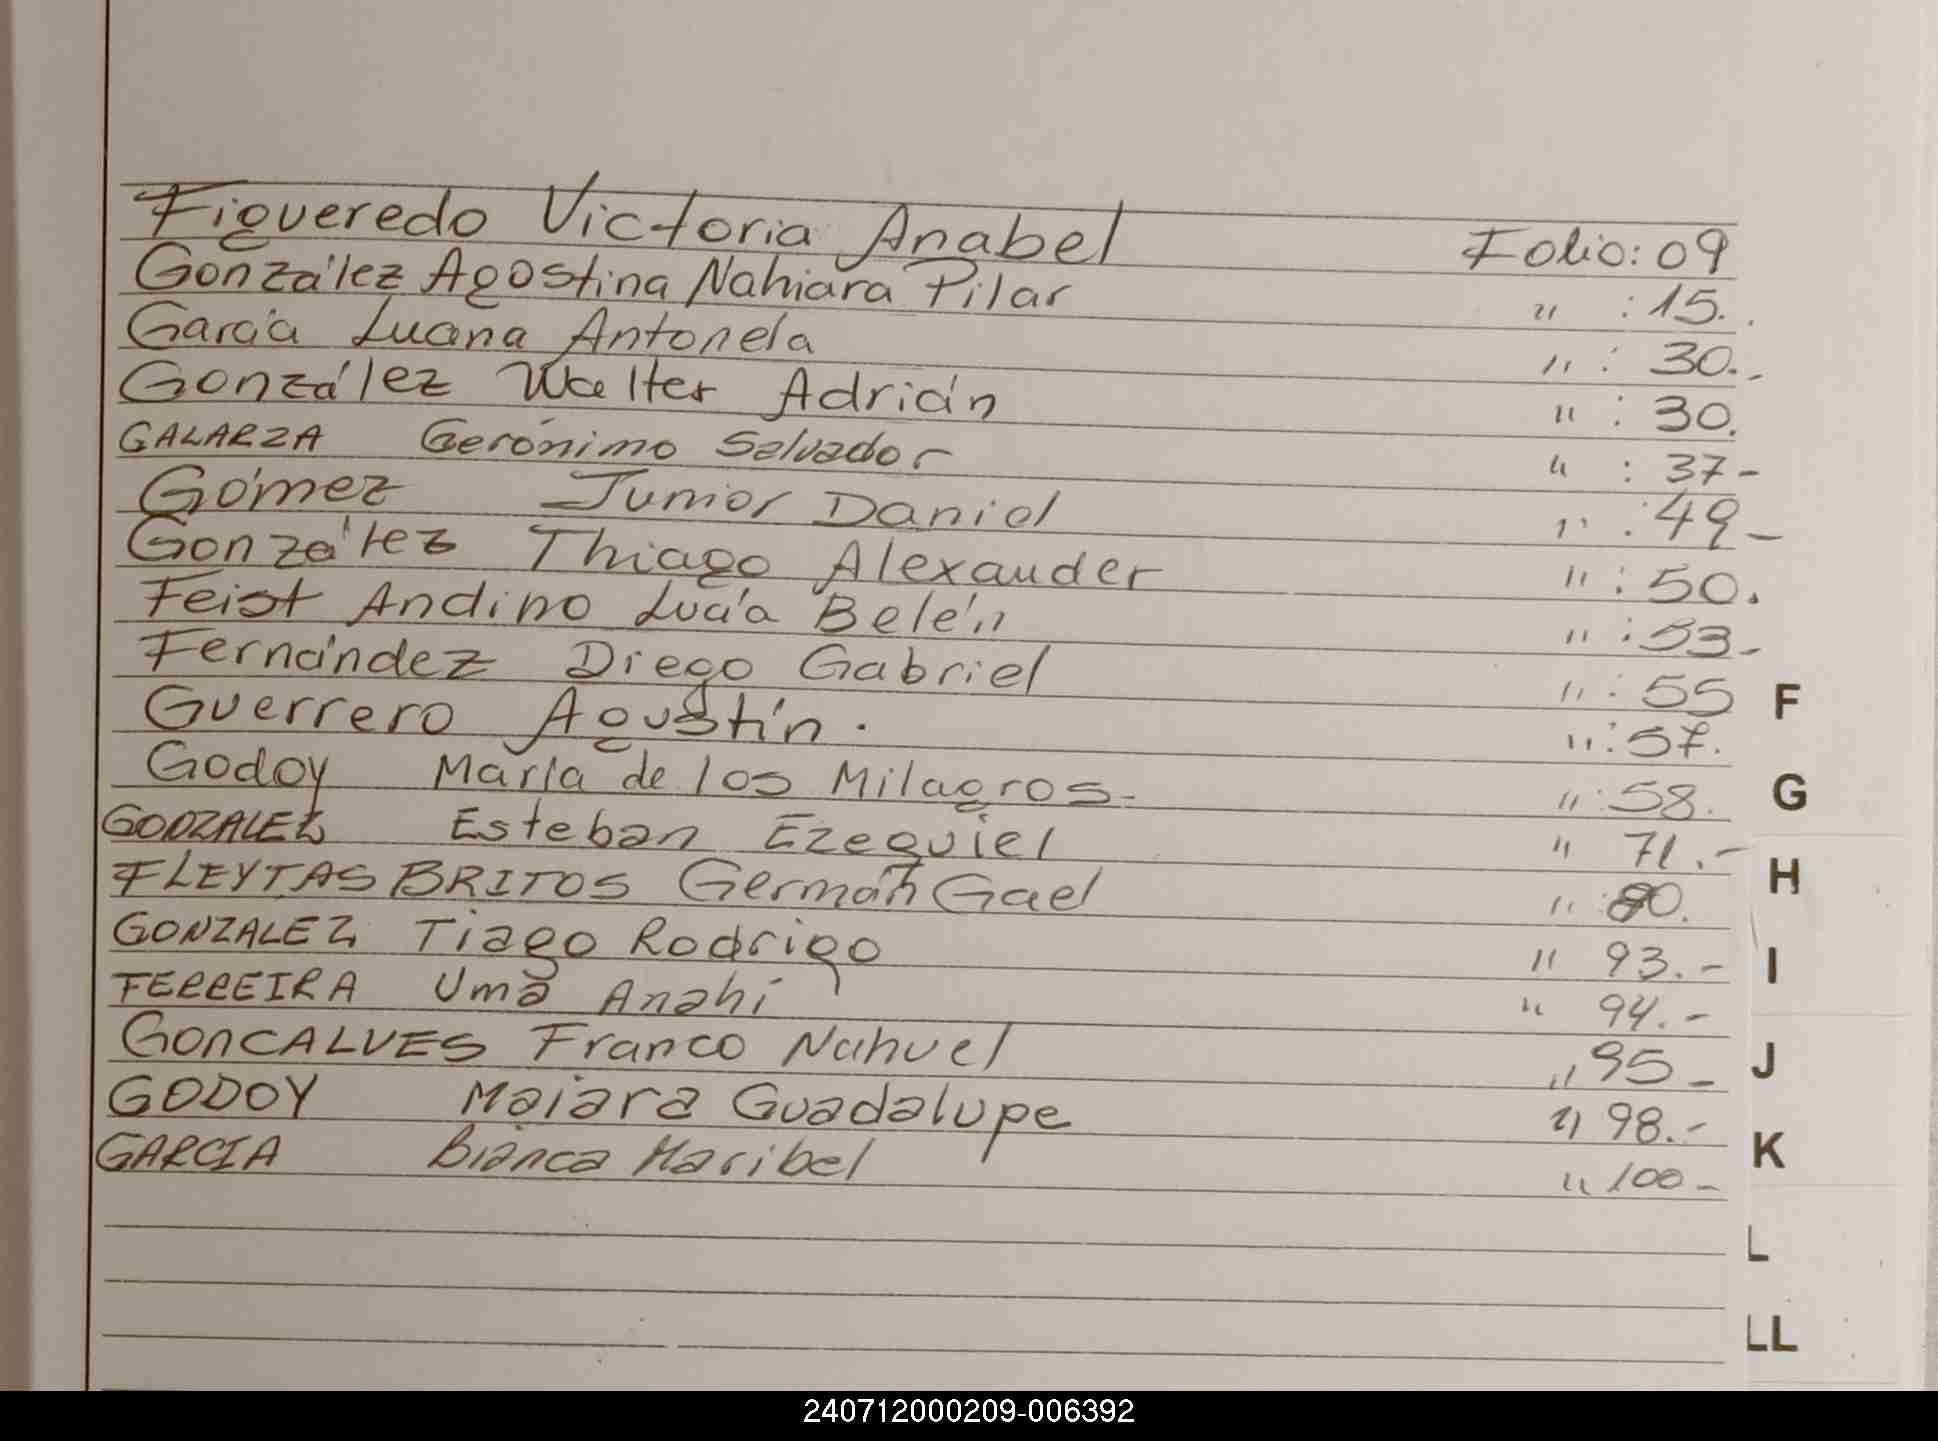 Figueredo Victoria Anabel Folio: 09
González Agostina Nahiara Pilar " : 15.
García Luana Antonela " : 30.-
González Walter Adrián " : 30.
GALARZA Gerónimo Salvador " : 37-
Gómez Junior Daniel " : 49-
González Thiago Alexander " : 50.
Feist Andino Lucía Belén " : 53-
Fernández Diego Gabriel " : 55
F
Guerrero Agustín. " : 57.
Godoy María de los Milagros- " : 58.
G
GONZALEZ Esteban Ezequiel " 71.-
H
FLEYTAS BRITOS Germán Gael " : 80.
GONZALEZ Tiago Rodrigo " 93.-
I
FERREIRA Uma Anahí " 94.-
GONCALVES Franco Nahuel " 95-
J
GODOY Maiara Guadalupe " 98.-
K
GARCIA Bianca Maribel " 100-
L
LL
240712000209-006392